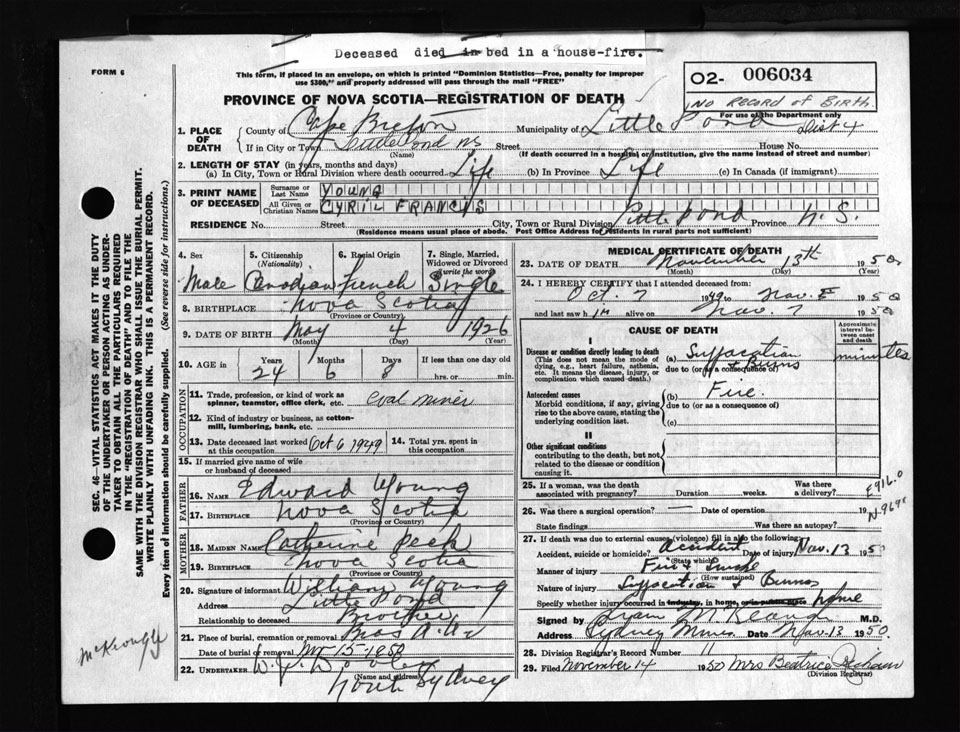 Deceased died in bed in a house-fire.
FORM 6
This form, if placed in an envelope, on which is printed "Dominion Statistics—Free, penalty for improper
use $300," and properly addressed will pass through the mail "FREE"
O2- 006034
No Record of Birth.
For use of the Department only
PROVINCE OF NOVA SCOTIA—REGISTRATION OF DEATH
Dist 4
1. PLACE OF DEATH
County of Cape Breton Municipality of Little Pond
If in City or Town Little Pond NS Street House No.
(Name) (If death occurred in a hospital or institution, give the name instead of street and number)
2. LENGTH OF STAY (in years, months and days)
(a) In City, Town or Rural Division where death occurred Life (b) In Province Life (c) In Canada (if immigrant)
3. PRINT NAME OF DECEASED
Surname or Last Name YOUNG
All Given or Christian Names CYRIL FRANCIS
RESIDENCE No. Street City, Town or Rural Division Little Pond Province N.S.
(Residence means usual place of abode. Post Office Address for residents in rural parts not sufficient)
4. Sex Male
5. Citizenship (Nationality) Canadian
6. Racial Origin French
7. Single, Married, Widowed or Divorced (write the word) Single
8. BIRTHPLACE Nova Scotia
(Province or Country)
9. DATE OF BIRTH May 4 1926
(Month) (Day) (Year)
10. AGE in Years 24 Months 6 Days 8 If less than one day old
hrs. or min.
OCCUPATION
11. Trade, profession, or kind of work as
spinner, teamster, office clerk, etc. coal miner
12. Kind of industry or business, as cotton-
mill, lumbering, bank, etc.
13. Date deceased last worked at this occupation Oct 6 1949
14. Total yrs. spent in this occupation
15. If married give name of wife
or husband of deceased
FATHER
16. NAME Edward Young
17. BIRTHPLACE Nova Scotia
(Province or Country)
MOTHER
18. MAIDEN NAME Catherine Peck
19. BIRTHPLACE Nova Scotia
(Province or Country)
20. Signature of informant William Young
Address Little Pond
Relationship to deceased Brother
21. Place of burial, cremation or removal
Date of burial or removal Nov 15-1950
22. UNDERTAKER
(Name and address)
North Sydney
MEDICAL CERTIFICATE OF DEATH
23. DATE OF DEATH November 13th 1950
(Month) (Day) (Year)
24. I HEREBY CERTIFY that I attended deceased from:
Oct. 7 1949 to Nov. 1950
and last saw him alive on Nov. 7 1950
CAUSE OF DEATH
Approximate interval between onset and death
I
Disease or condition directly leading to death
(This does not mean the mode of
dying, e.g., heart failure, asthenia,
etc. It means the disease, injury, or
complication which caused death.)
(a) Suffocation & Burns minutes
due to (or as a consequence of)
Antecedent causes
Morbid conditions, if any, giving
rise to the above cause, stating the
underlying condition last.
(b) Fire.
due to (or as a consequence of)
(c)
II
Other significant conditions
contributing to the death, but not
related to the disease or condition
causing it.
25. If a woman, was the death
associated with pregnancy? Duration weeks. Was there a delivery?
E916.0
N-969
26. Was there a surgical operation? — Date of operation 19
State findings Was there an autopsy?
27. If death was due to external causes (violence) fill in also the following:
Accident, suicide or homicide? Accident Date of injury Nov. 13 1950
(State which)
Manner of injury Fire & smoke
(How sustained)
Nature of injury Suffocation & Burns
Specify whether injury occurred in industry, in home, or in public place home
Signed by M.D.
Address Sydney Mines Date Nov. 13 1950.
28. Division Registrar's Record Number 11
29. Filed November 14 1950 Mrs Beatrice
(Division Registrar)
SEC. 46—VITAL STATISTICS ACT MAKES IT THE DUTY
OF THE UNDERTAKER OR PERSON ACTING AS UNDER-
TAKER TO OBTAIN ALL THE PARTICULARS REQUIRED
IN THE "REGISTRATION OF DEATH" AND TO FILE THE
SAME WITH THE DIVISION REGISTRAR WHO SHALL ISSUE THE BURIAL PERMIT.
WRITE PLAINLY WITH UNFADING INK. THIS IS A PERMANENT RECORD.
Every item of information should be carefully supplied. (See reverse side for instructions.)
McKeough